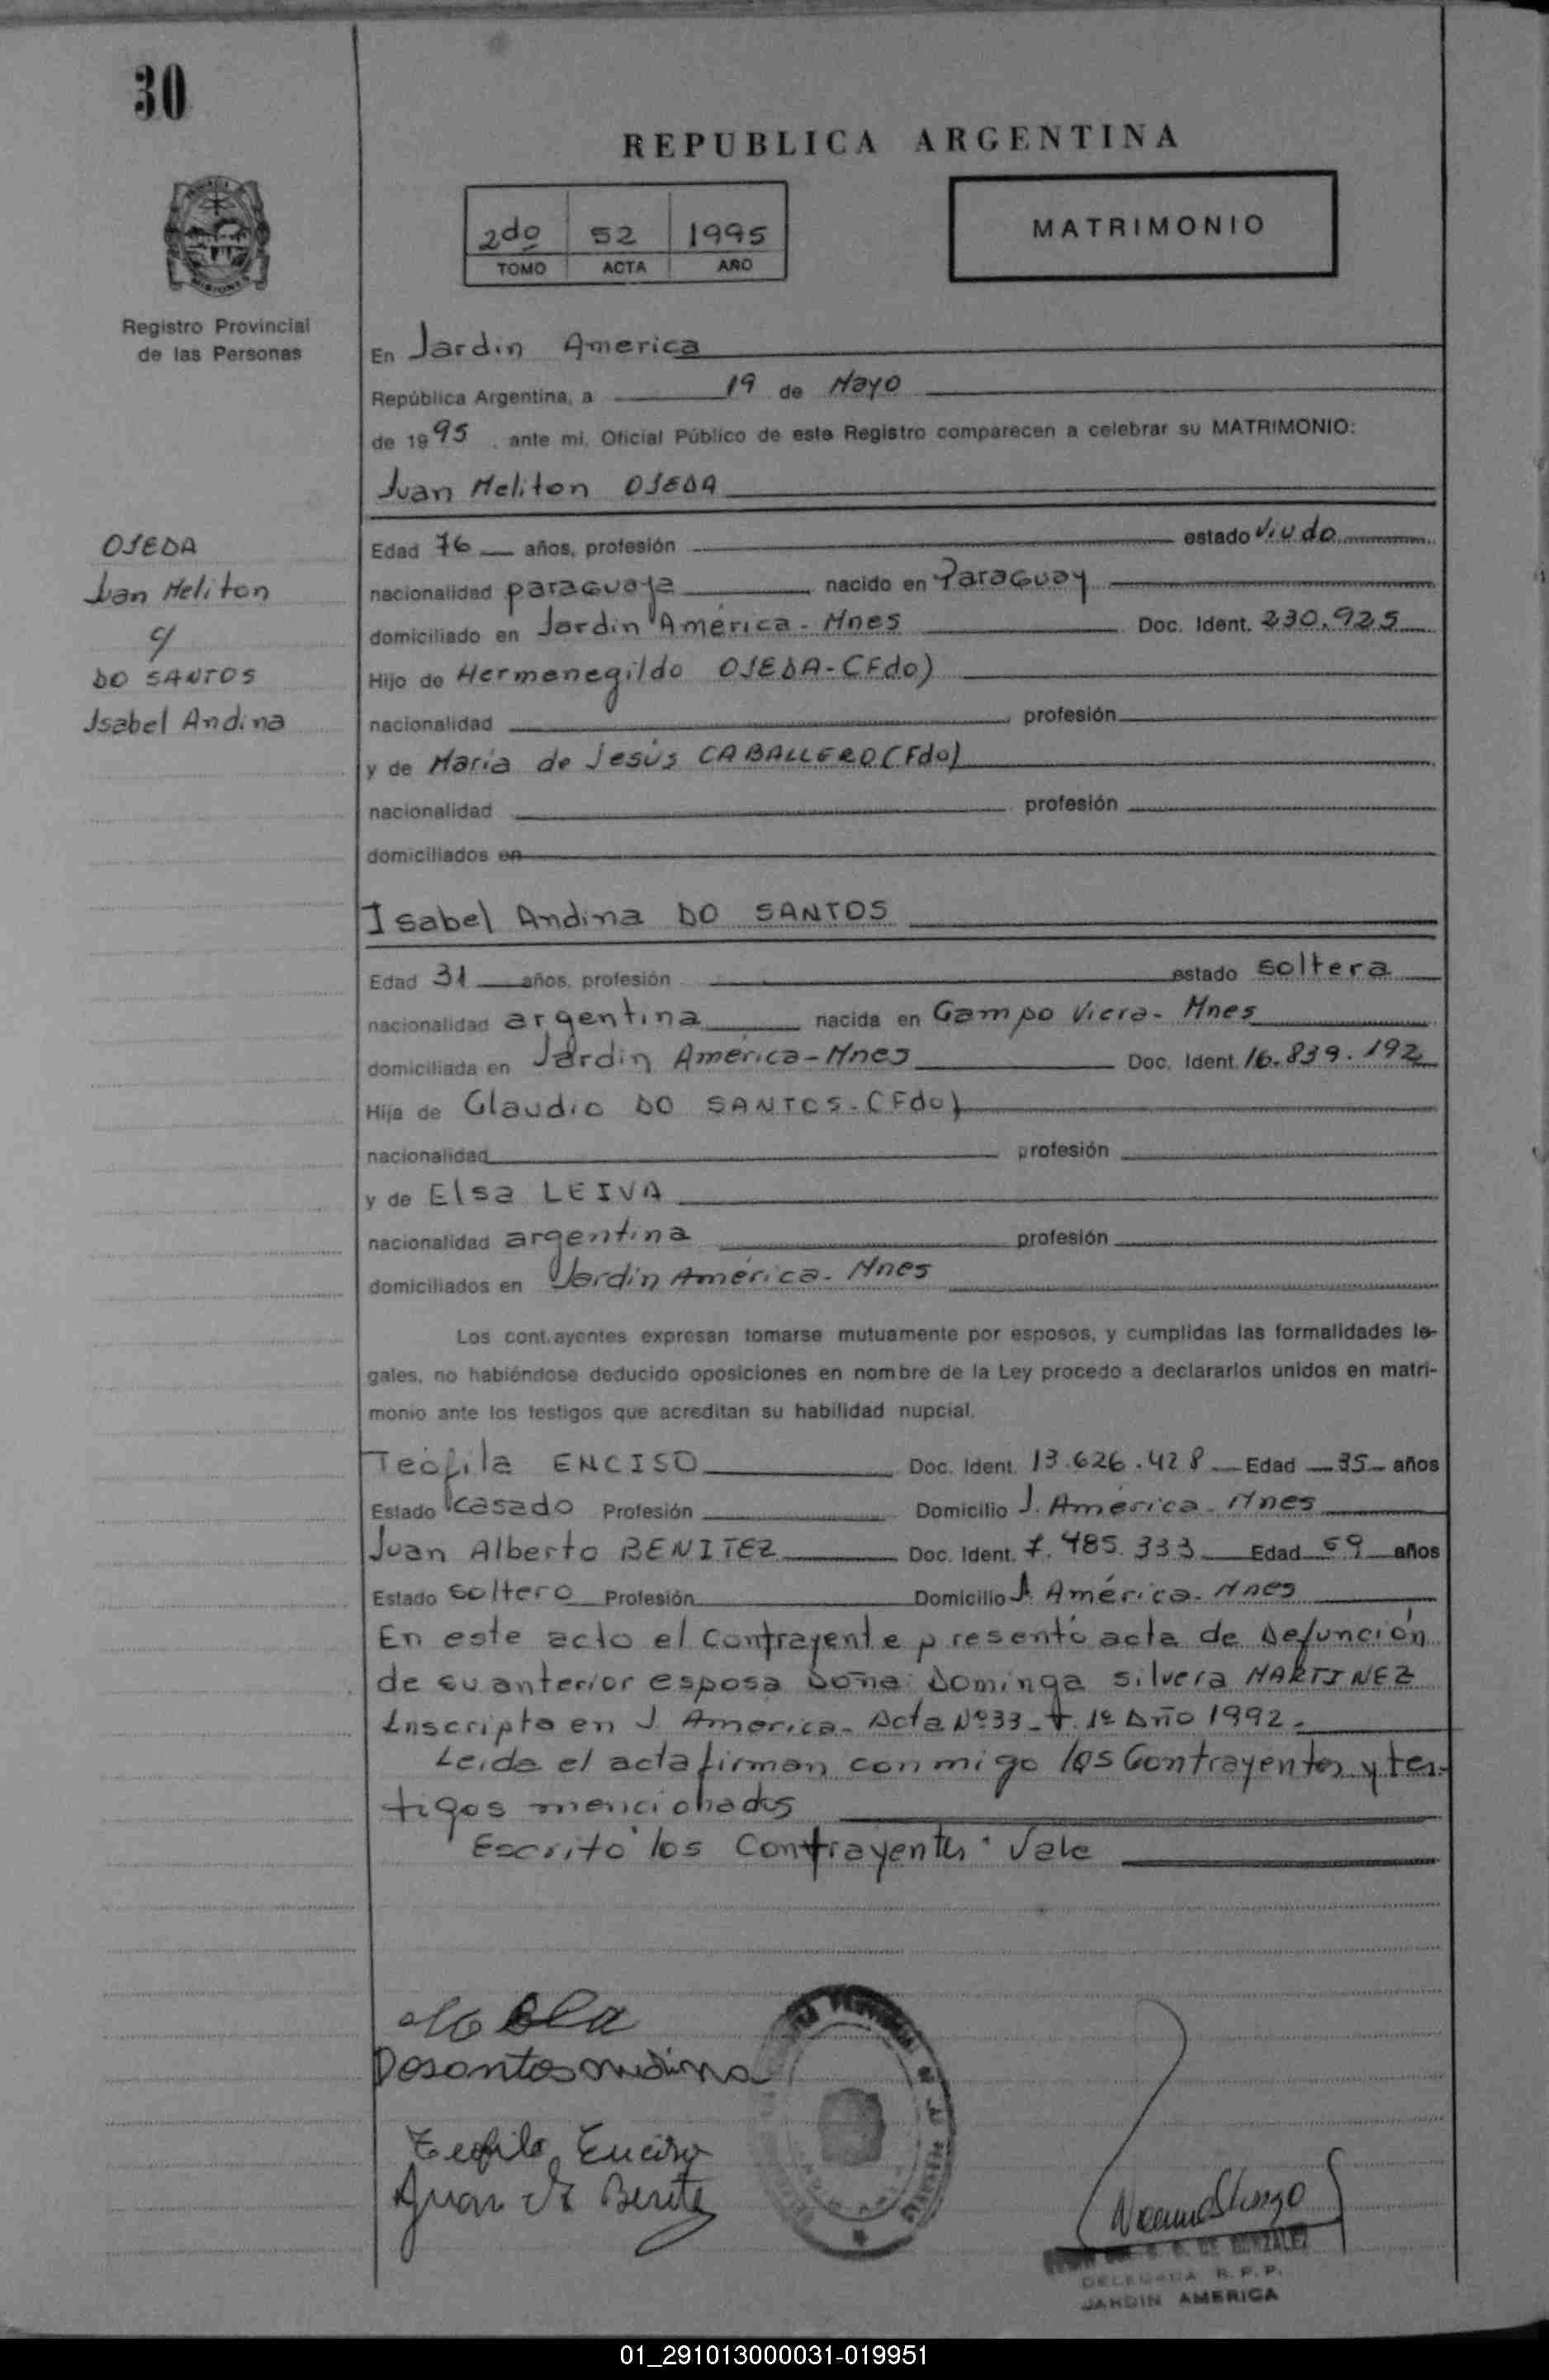 30
REPUBLICA ARGENTINA
2do 52 1995
TOMO ACTA AÑO
MATRIMONIO
MISIONES
Registro Provincial
de las Personas
En Jardin America
República Argentina, a 19 de Mayo
de 1995, ante mi, Oficial Público de este Registro comparecen a celebrar su MATRIMONIO:
Juan Meliton OJEDA
OJEDA
Juan Meliton
c/
DO SANTOS
Isabel Andina
Edad 76 años, profesión estado Viudo
nacionalidad paraguaya nacido en Paraguay
domiciliado en Jardin América - Mnes Doc. Ident. 230.925
Hijo de Hermenegildo OJEDA-(Fdo)
nacionalidad profesión
y de Maria de Jesús CABALLERO (Fdo)
nacionalidad profesión
domiciliados en
Isabel Andina DO SANTOS
Edad 31 años, profesión estado soltera
nacionalidad argentina nacida en Campo Viera - Mnes
domiciliada en Jardin América - Mnes Doc. Ident. 16.839.192
Hija de Claudio DO SANTOS - (Fdo)
nacionalidad profesión
y de Elsa LEIVA
nacionalidad argentina profesión
domiciliados en Jardin América - Mnes
Los contrayentes expresan tomarse mutuamente por esposos, y cumplidas las formalidades le-
gales, no habiéndose deducido oposiciones en nombre de la Ley procedo a declararlos unidos en matri-
monio ante los testigos que acreditan su habilidad nupcial.
Teófila ENCISO Doc. Ident. 13.626.428 Edad 35 años
Estado casado Profesión Domicilio J. América - Mnes
Juan Alberto BENITEZ Doc. Ident. 7.485.333 Edad 59 años
Estado soltero Profesión Domicilio J. América - Mnes
En este acto el contrayente presentó acta de Defunción
de su anterior esposa Doña Dominga Silvera MARTINEZ
Inscripta en J. America - Acta Nº 33 - T. 1º Año 1992.
Leida el acta firman conmigo los Contrayentes y tes-
tigos mencionados
Escrito "los Contrayentes" Vale
Dosantos Andina
Teofilo Enciso
Juan A Benitez
DE GONZALEZ
DELEGADA R. P. P.
JARDIN AMERICA
01_291013000031-019951